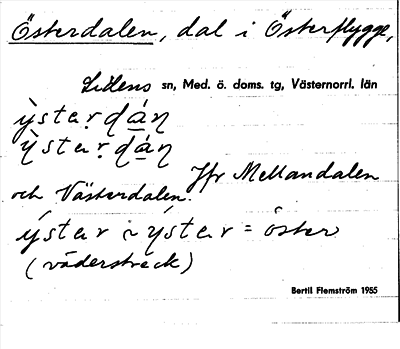 Österdalen, dal i Österflygge,
Lidens sn, Med. ö. doms. tg, Västernorrl. län
ỳstaṛ dá̲ṇ
Ỳstaṛ dá̲ṇ
Jfr Mellandalen
och Västerdalen.
ýstar ~ ystar = öster
(väderstreck)
Bertil Flemström 1955